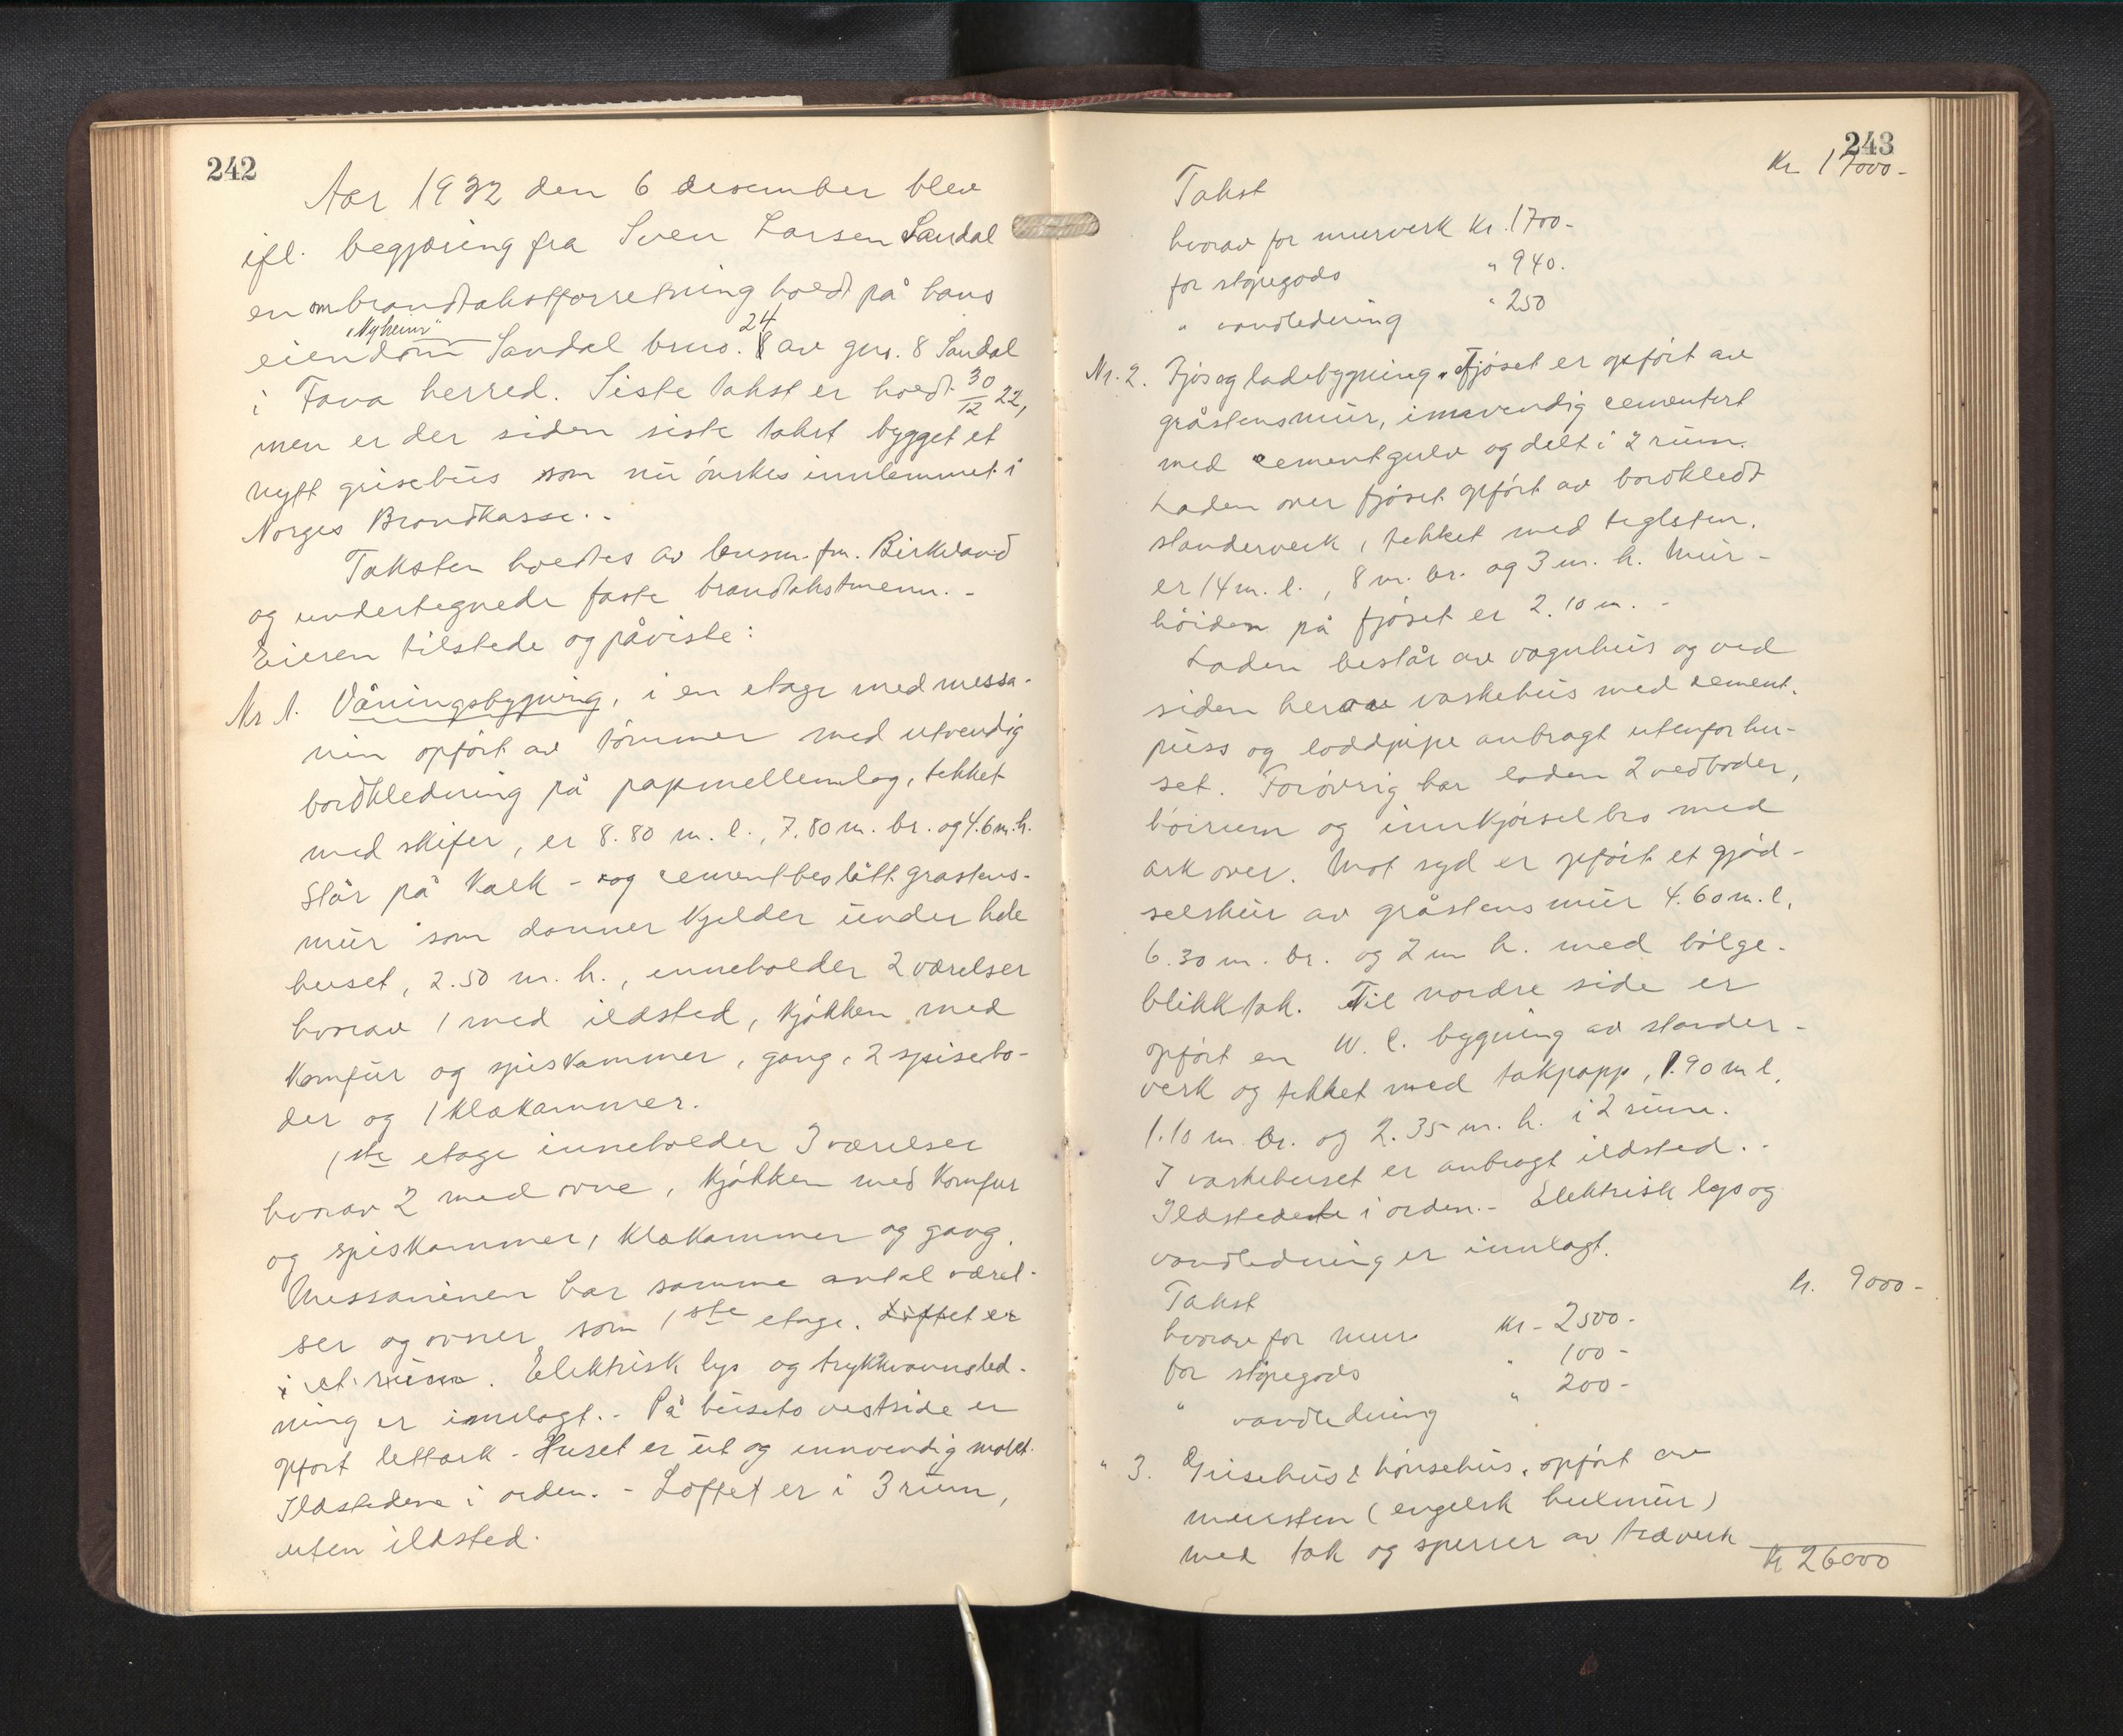 242
Aar 1932 den 6 desember blev
ifl. begjæring fra Sven Larsen Sandal
en ombrandtakstforretning holdt på hans
"Nyheim" 24
eiendom Sandal brno. 8 av gno. 8 Sandal
i Fana herred. Siste takst er holdt 30/12 22,
men er der siden siste takst bygget et
nytt grisehus som nu ønskes innlemmet i
Norges Brandkasse. -
Taksten holdtes av lensm. fm. Birkeland
og undertegnede faste brandtakstmenn. -
Eieren tilstede og påviste:
Nr 1. Våningsbygning, i en etage med messa-
nin opført av tømmer med utvendig
bordkledning på papmellemlag, tekket
med skifer, er 8.80 m. l., 7.80 m. br. og 4.6 m. h.
Står på kalk- og cementbeslått grastens-
mur som danner kjelder under hele
huset, 2.50 m. h., inneholder 2 værelser
hvorav 1 med ildsted, kjøkken med
komfur og spiskammer, gang, 2 spisebo-
der og 1 klækammer.
1ste etage inneholder 3 værelser
hvorav 2 med ovne, kjøkken med komfur
og spiskammer, klækammer og gang.
Messaninen har samme antal værel-
ser og ovner som 1ste etage. Loftet er
i et rum. Elektrisk lys og trykkvannsled-
ning er innlagt. - På husets vestside er
opført lettark - Huset er ut og innvendig malt.
Ildstedene i orden. - Loftet er i 3 rum,
uten ildsted.
243
Takst Kr 17000 -
hvorav for murverk Kr. 1700 -
for støpegods " 940.
" vandledning " 250
Nr. 2. Fjøs og ladebygning. Fjøset er opført av
gråstensmur, innvendig cementert
med cementgulv og delt i 2 rum.
Laden over fjøset opført av bordkledt
standerverk, tekket med teglsten,
er 14 m. l., 8 m. br. og 3 m. h. Mur-
høiden på fjøset er 2.10 m. -
Laden består av vognhus og ved
siden herav vaskehus med cement-
puss og loddpipe anbragt utenfor hu-
set. Forøvrig har laden 2 vedboder,
høirum og innkjørselbro med
ark over. Mot syd er opført et gjød-
selskur av gråstensmur 4.60 m. l,
6.30 m. br. og 2 m h. med bølge-
blikktak. Til nordre side er
opført en W. C. bygning av stander-
verk og tekket med takpapp, 1.90 m l,
1.10 m br. og 2.35 m. h. i 2 rum.
I vaskehuset er anbragt ildsted. -
Ildstedene i orden. - Elektrisk lys og
vandledning er innlagt.
Takst Kr. 9000 -
hvorav for mur Kr - 2500 -
for støpegods " 100 -
" vandledning " 200 -
" 3. Grisehus & hønsehus, opført av
mursten (engelsk hulmur)
med tak og sperrer av træverk
Kr 26000